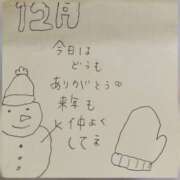 12月
今日は
どうも
ありがとう
来年も
仲よく
してネ